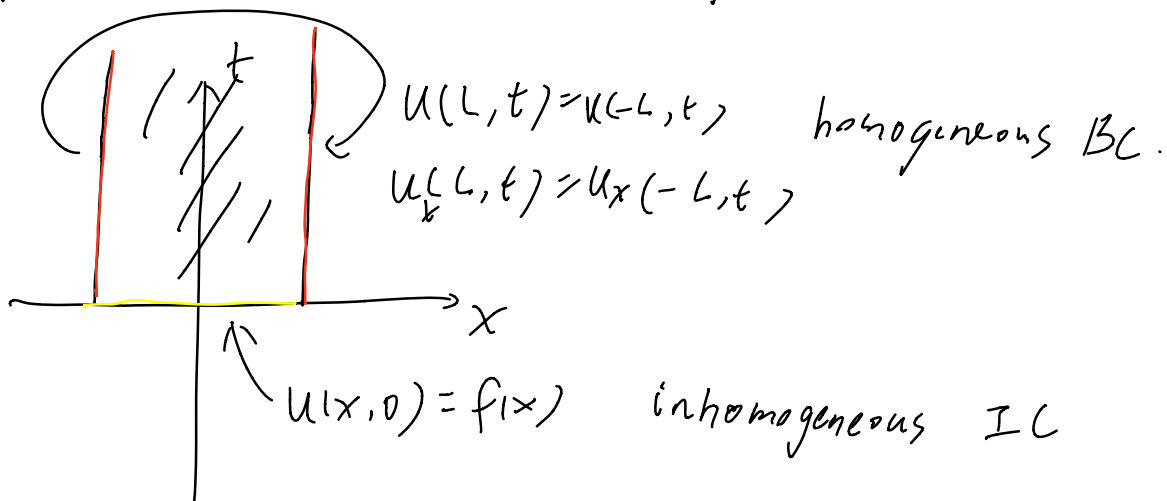 t
u(L,t)=u(-L,t) homogeneous BC.
u_x(L,t)=u_x(-L,t)
x
u(x,0)=f(x) inhomogeneous IC